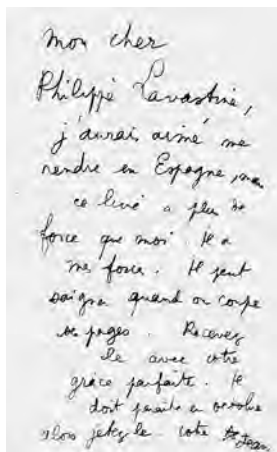 mon cher
Philippe Lavastine,
j'aurais aimé me
rendre en Espagne, mais
ce livre a plus de
force que moi. Il a
mes forces. Il peut
saigner quand on coupe
ses pages. Recevez
le avec votre
grâce parfaite. Il
doit paraître en octobre
alors jetez le. votre Jean